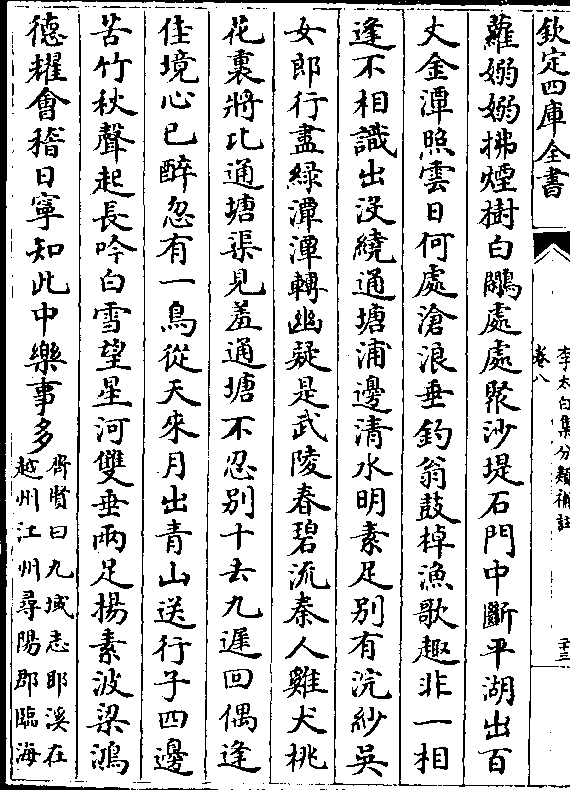 欽定四庫全書
李太白集分類補註
卷八
二十三
蘿嫋嫋拂煙樹白鷴處處聚沙堤石門中斷平湖出百
丈金潭照雲日何處滄浪垂釣翁鼓棹漁歌趣非一相
逢不相識出沒繞通塘浦邊清水明素足别有浣紗吳
女郎行盡緑潭潭轉幽疑是武陵春碧流秦人雞犬桃
花裏將比通塘渠見羞通塘不忍别十去九遲回偶逢
佳境心已醉忽有一鳥從天來月出青山送行子四邊
苦竹秋聲起長吟白雪望星河雙垂兩足揚素波梁鴻
德耀會稽日寧知此中樂事多
齊賢曰九域志耶溪在
越州江州尋陽郡臨海